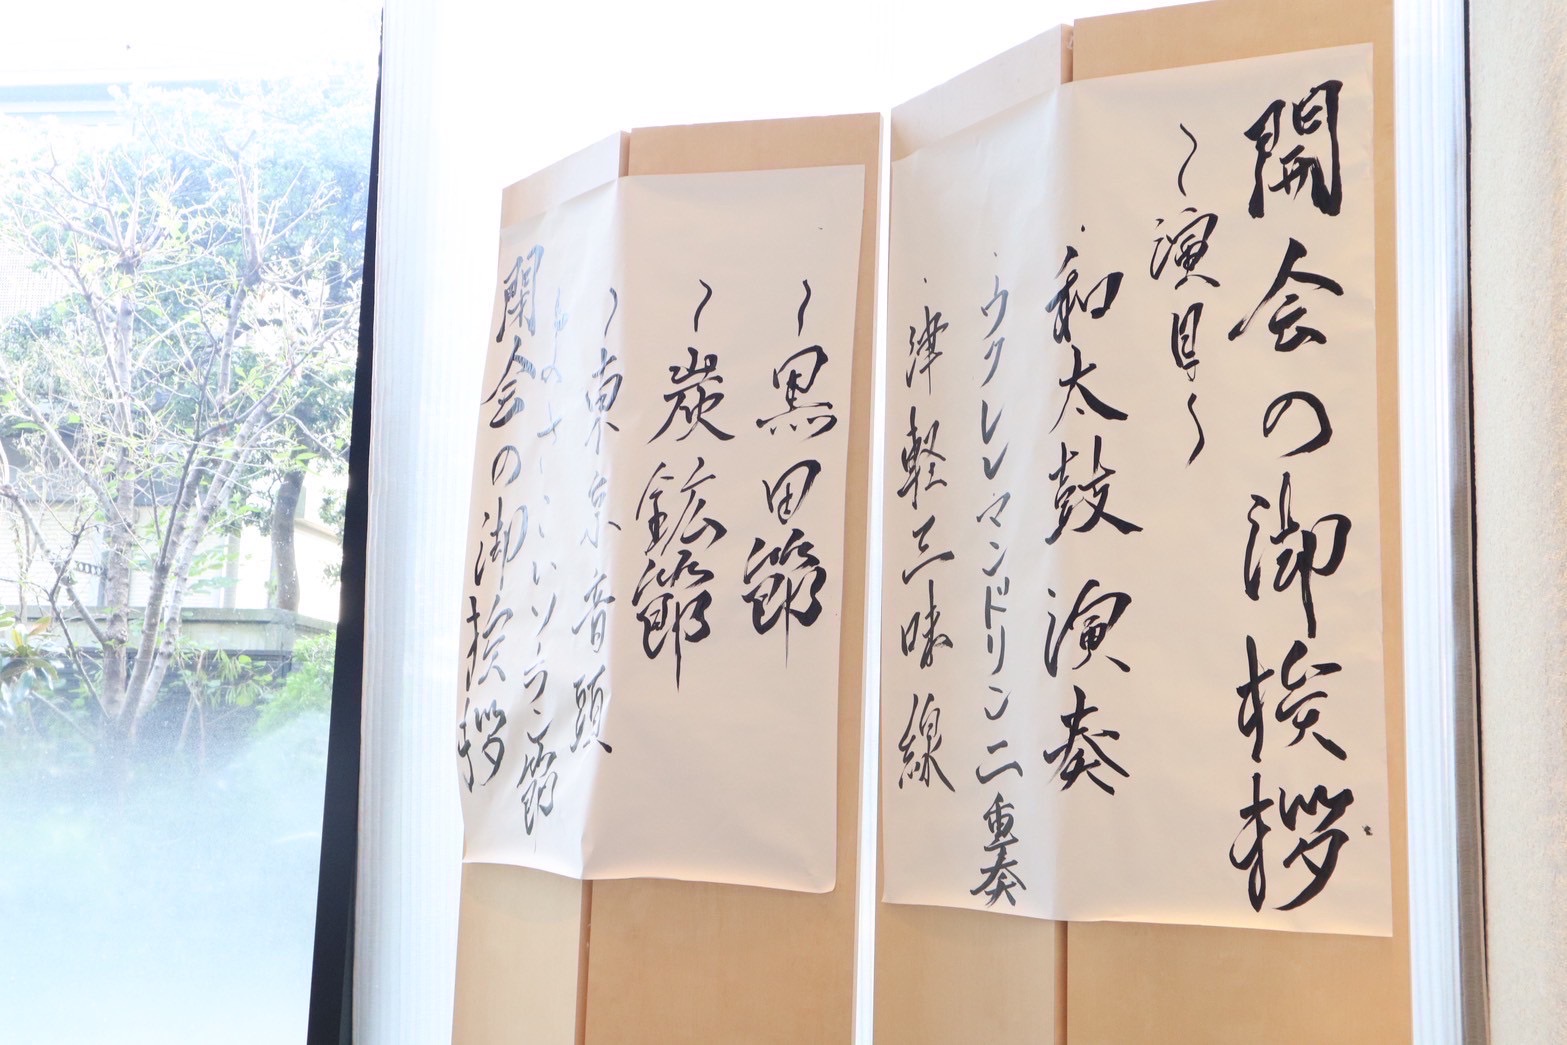 開会の御挨拶
～演目～
・和太鼓演奏
・ウクレレマンドリン二重奏
・津軽三味線
～黒田節
～炭鉱節
～東京音頭
～よさこいソーラン節
閉会の御挨拶